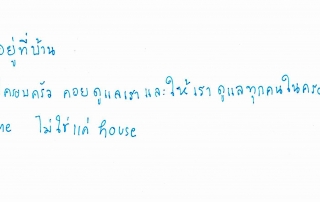 อยู่ที่บ้าน
ครอบครัว คอยดูแลเราและให้เราดูแลทุกคนในครอ
me ไม่ใช่แค่ house